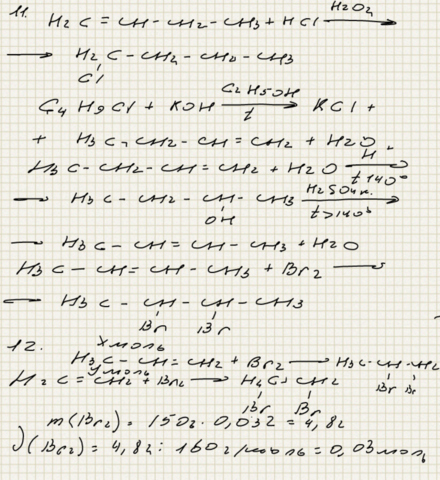 11. H₂C=CH-CH₂-CH₃+HCl H₂O₂→
→ H₂C-CH₂-CH₂-CH₃
Cl
C₄H₉Cl + KOH C₂H₅OH t→ KCl +
+ H₃C-CH₂-CH=CH₂ + H₂O
H₃C-CH₂-CH=CH₂ + H₂O H t 140°→
→ H₃C-CH₂-CH-CH₃ H₂SO₄к. t>140°→
OH
→ H₃C-CH=CH-CH₃+H₂O
H₃C-CH=CH-CH₃+Br₂ →
← H₃C-CH-CH-CH₃
Br Br
12. Xмоль
H₃C-CH=CH₂+Br₂ → H₃C-CH-CH₂
Yмоль Br Br
H₂C=CH₂+Br₂ →
Br Br
m(Br₂)=150г·0,032=4,8г
(Br₂)=4,8г:160г/моль=0,03моль